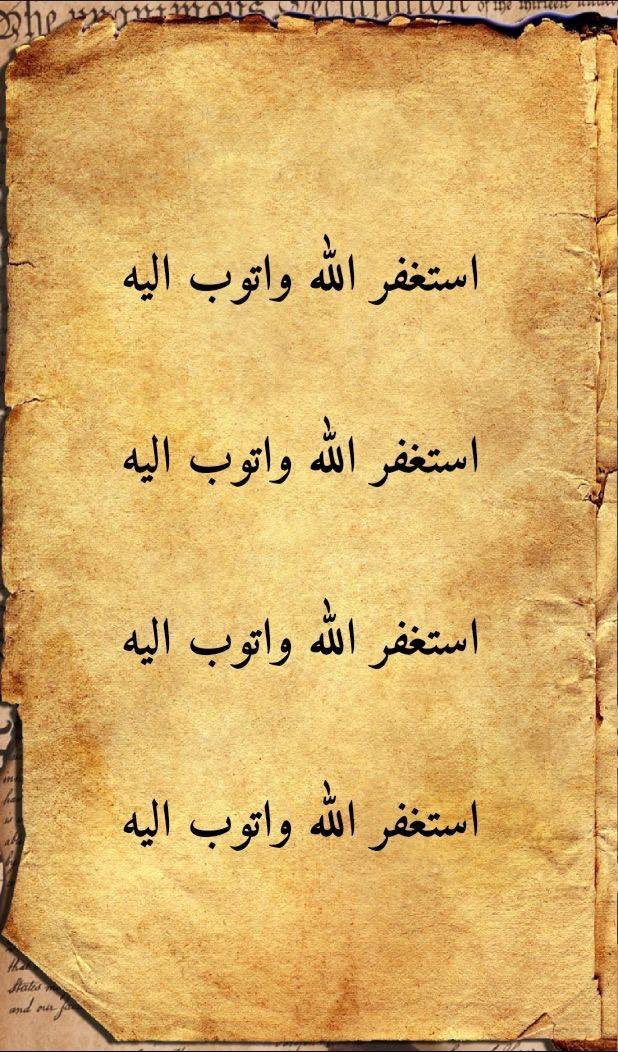 The unanimous Declaration of the thirteen united
استغفر الله واتوب اليه
استغفر الله واتوب اليه
استغفر الله واتوب اليه
استغفر الله واتوب اليه
that
States
and our